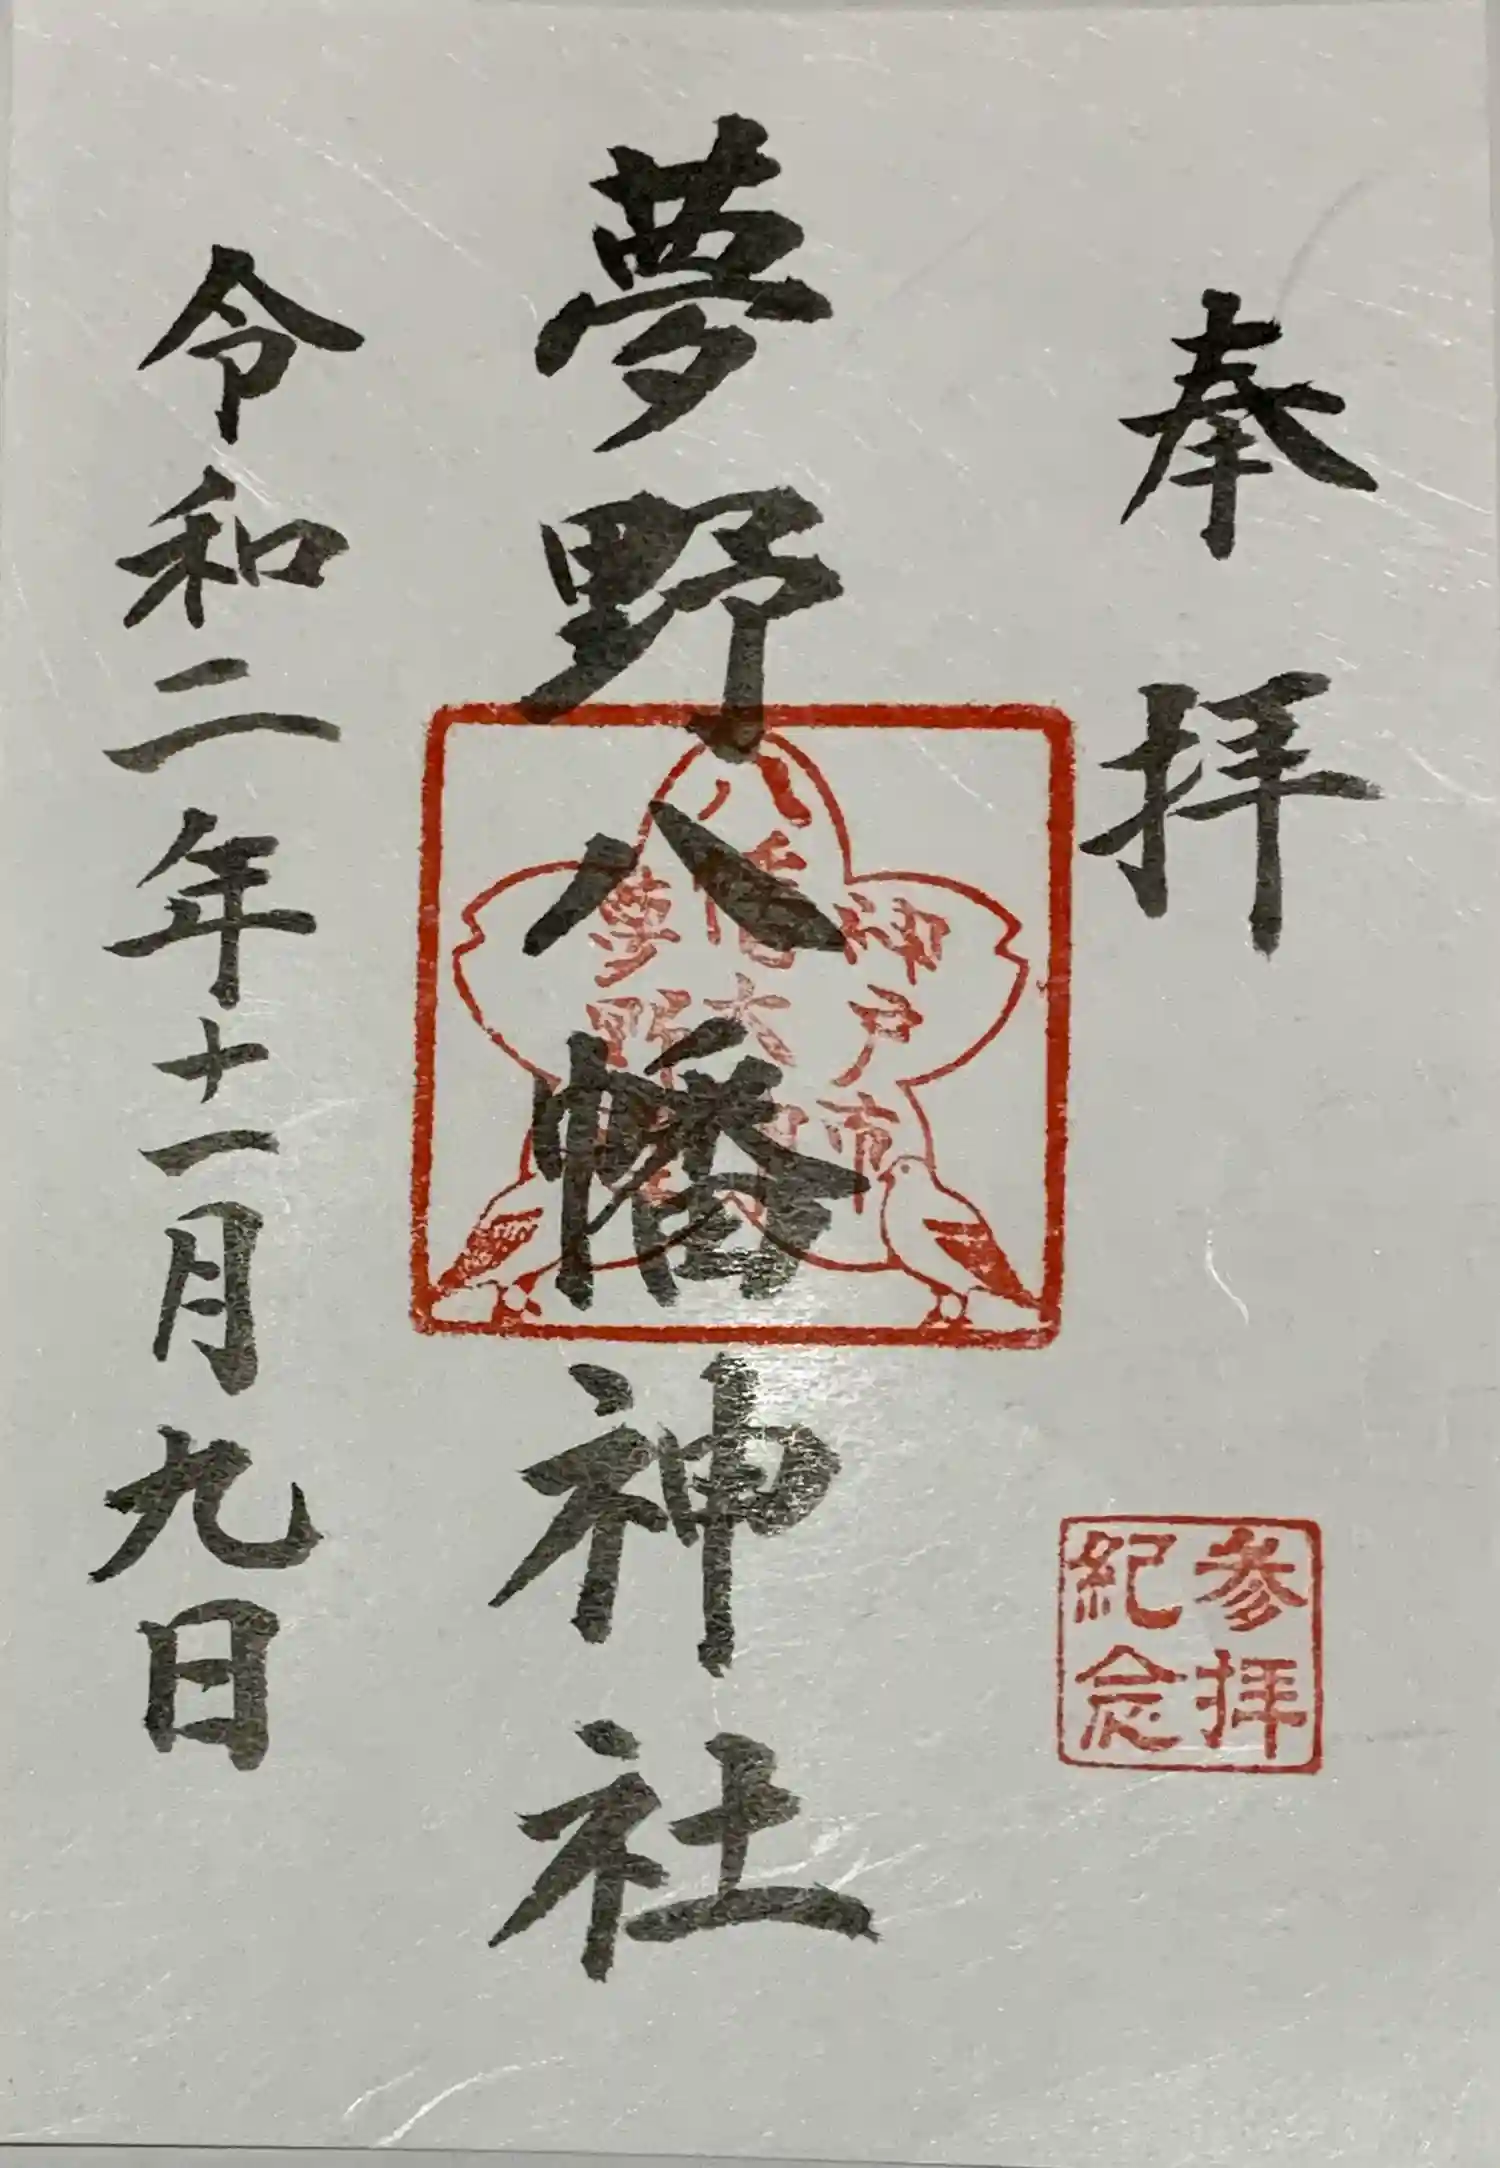 奉拝
夢野八幡神社
令和二年十一月九日
神戸市
八幡大神
夢野
参拝
紀念